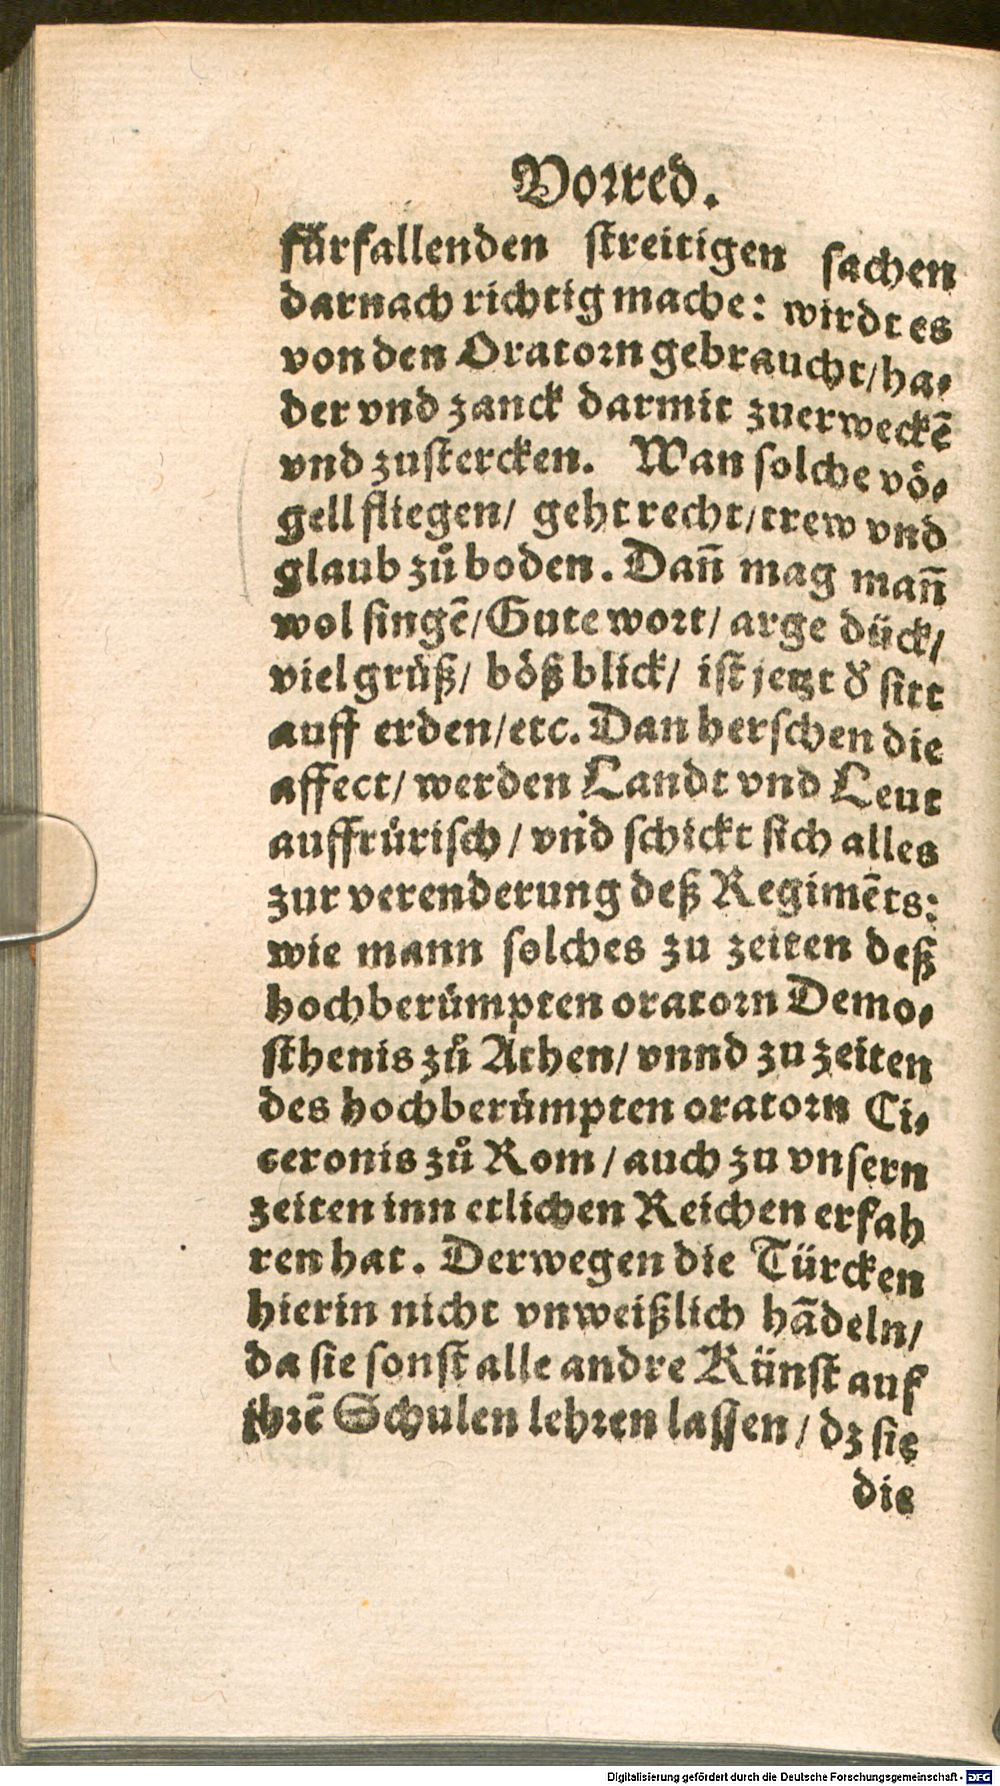 Vorred.
fürfallenden streitigen sachen
darnach richtig mache: wirdt es
von den Oratorn gebraucht/ ha-
der vnd zanck darmit zuerweckē
vnd zustercken. Wan solche vö-
gell fliegen/ geht recht/ trew vnd
glaub zů boden. Dañ mag mañ
wol singē/ Gute wort/ arge dück/
viel grüß/ böß blick/ ist jetzt d' sitt
auff erden/ etc. Dan herschen die
affect/ werden Landt vnd Leut
auffrürisch/ vnd schickt sich alles
zur verenderung deß Regimēts:
wie mann solches zu zeiten deß
hochberümpten oratorn Demo-
sthenis zů Athen/ vnnd zu zeiten
des hochberümpten oratorn Ci-
ceronis zů Rom/ auch zu vnsern
zeiten inn etlichen Reichen erfah
ren hat. Derwegen die Türcken
hierin nicht vnweißlich hādeln/
da sie sonst alle andre Künst auf
jhrē Schulen lehren lassen/ dz sie
die
Digitalisierung gefördert durch die Deutsche Forschungsgemeinschaft - DFG